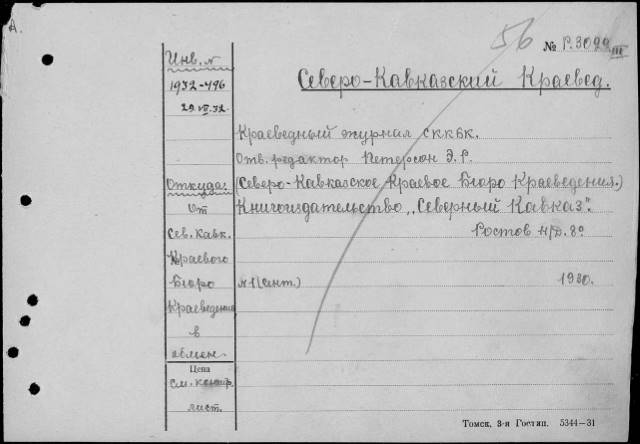 А.
56 № Р.3099 III
Инв. №
1932-496
29 VII 32.
Северо-Кавказский Краевед.
Краеведный журнал СККБК.
Отв. редактор Петерсон Э.Р.
Откуда:
(Северо-Кавказское Краевое Бюро Краеведения.)
От
Книгоиздательство „Северный Кавказ".
Сев. Кавк.
Ростов н/Д. 8º
Краевого
Бюро
№1 (сент.) 1930.
Краеведения
в
обмен
Цена
См. контр.
лист.
Томск, 3-я Гостип. 5344—31